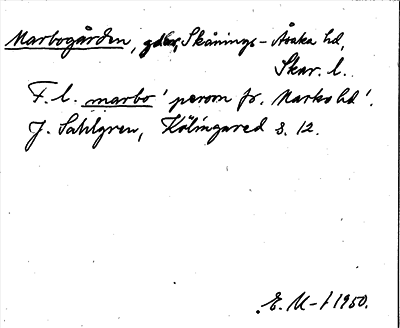 Marbogården, gdbg, Skånings-Åsaka hd,
Skar. l.
F. l. marbo 'person fr. Marks hd'.
J. Sahlgren, Kölingared s. 12.
E. M-t 1950.